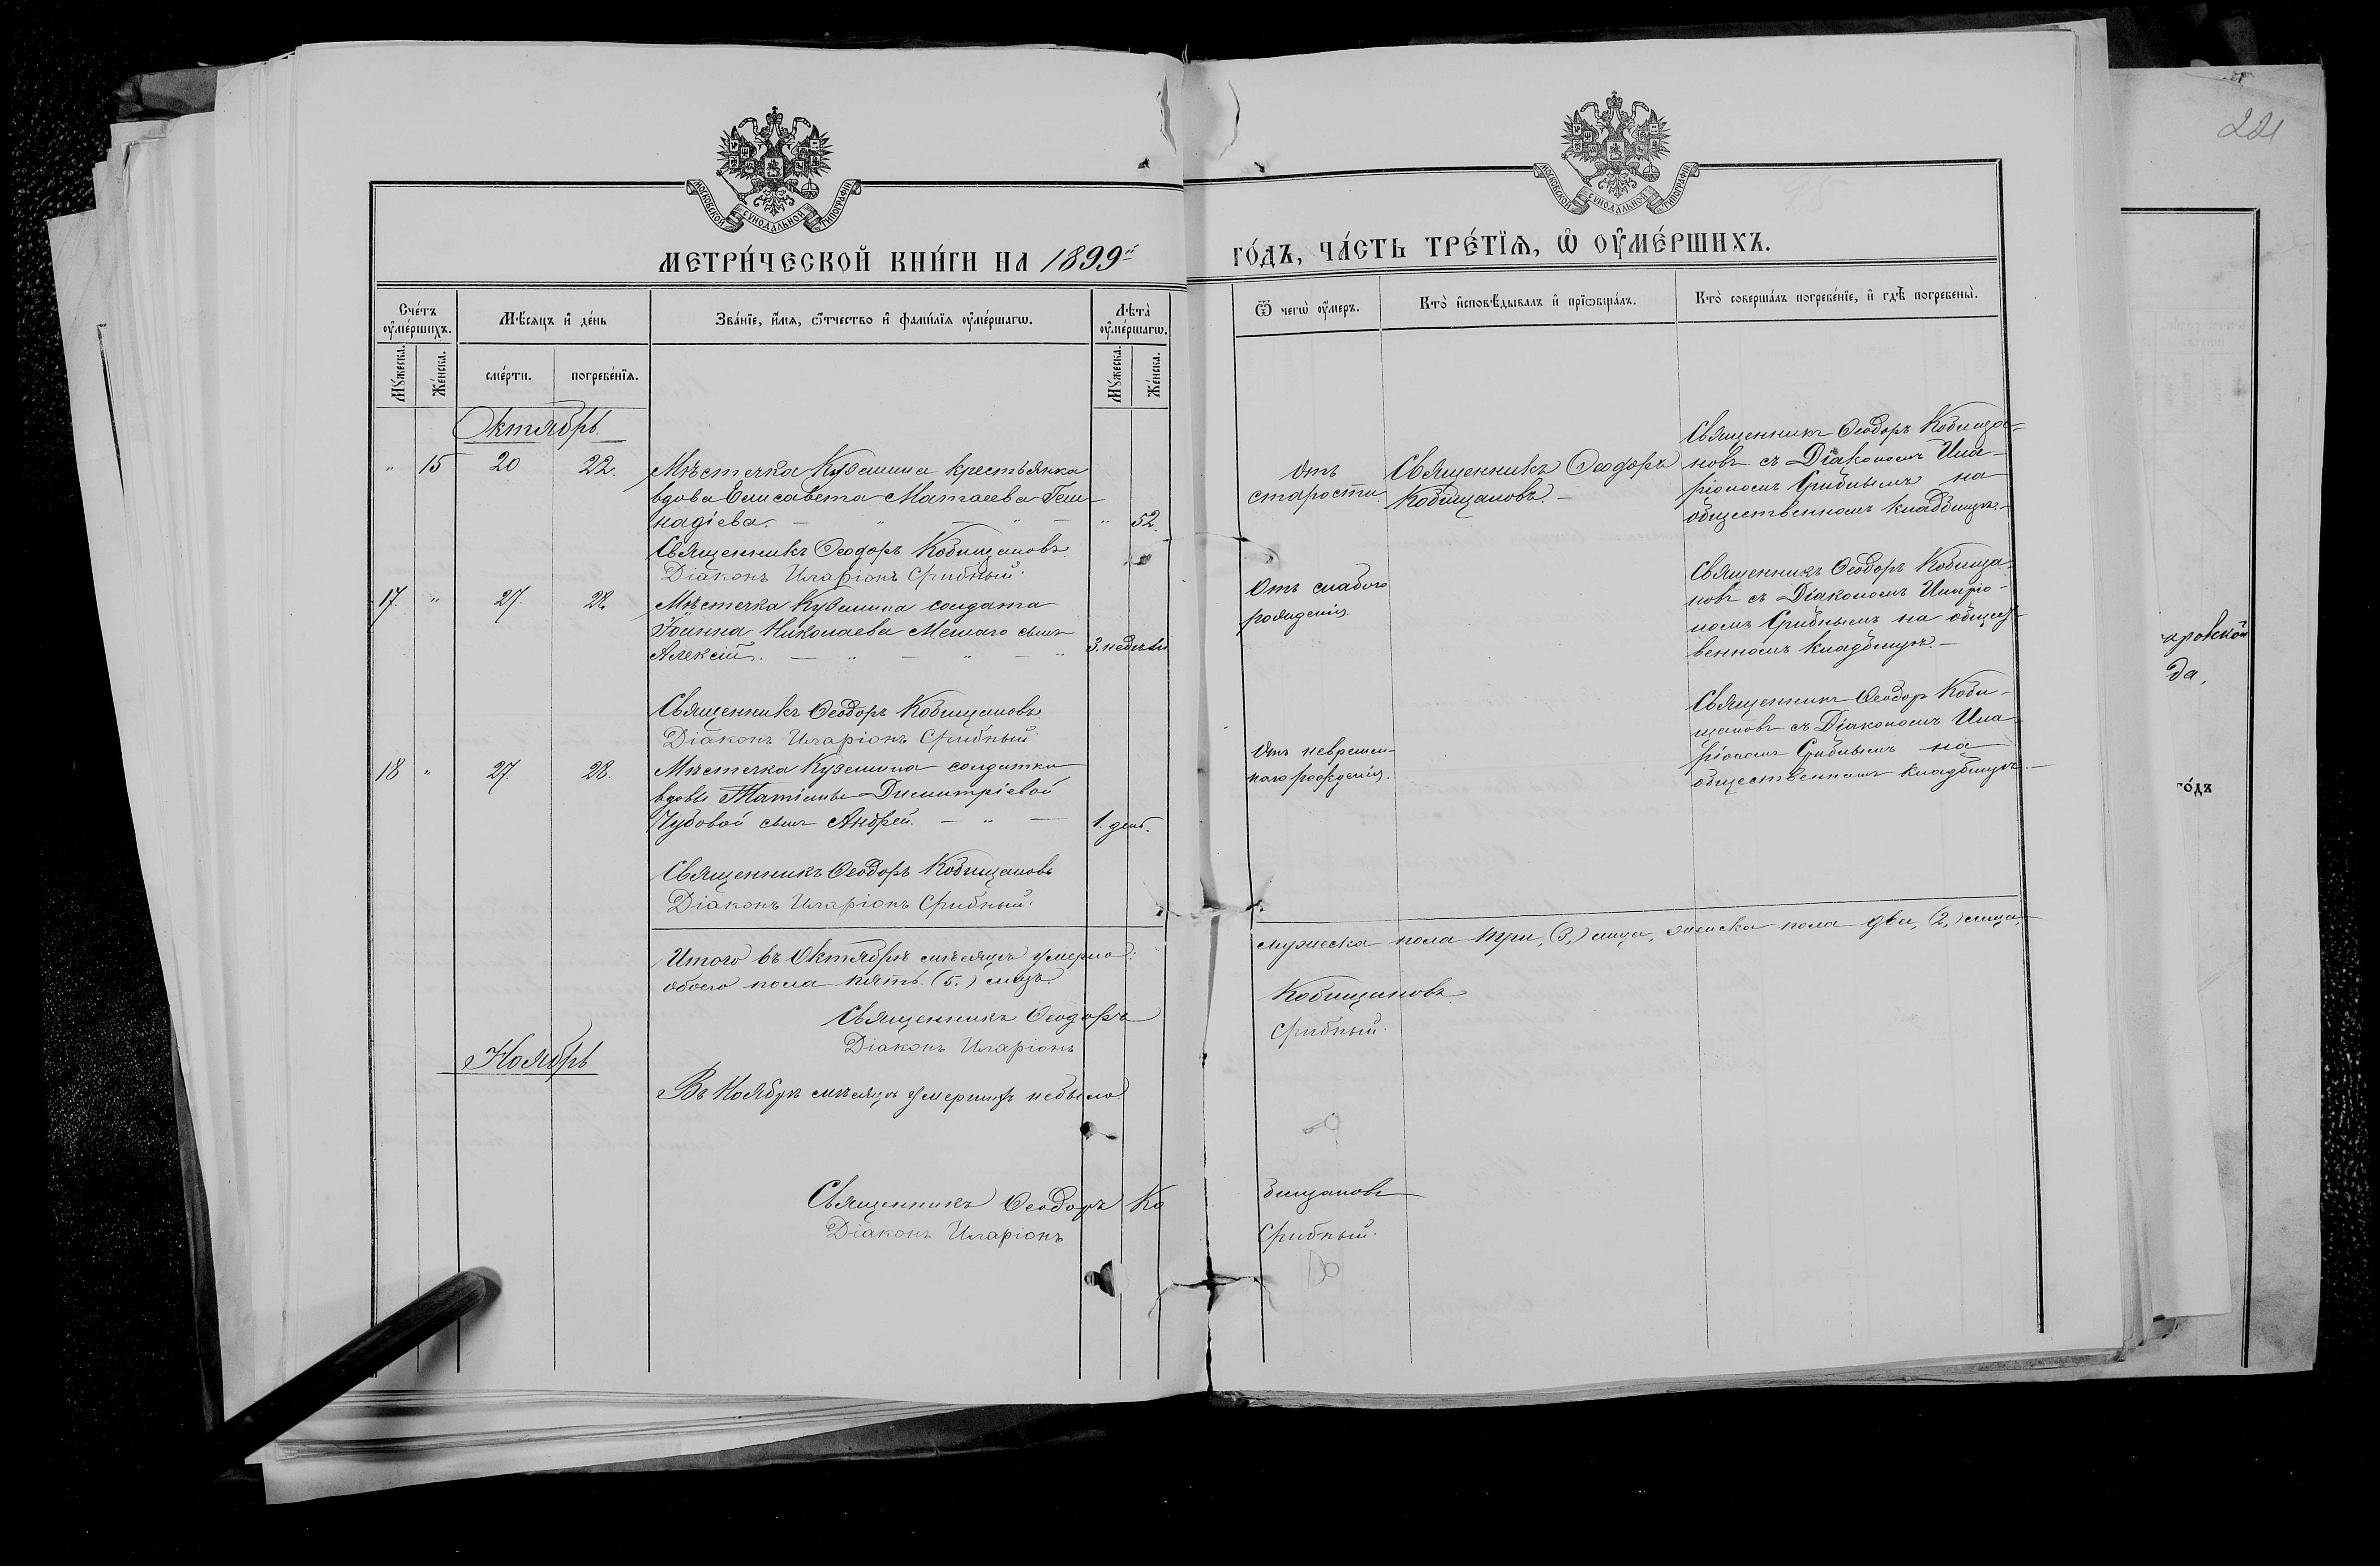 МОСКОВСКОЙ СѴНОДАЛЬНОЙ ТИПОГРАФІИ
МОСКОВСКОЙ СѴНОДАЛЬНОЙ ТИПОГРАФІИ
221
МЕТРИ́ЧЕСКОЙ КНИ́ГИ НА 1899й
ГО́ДЪ, ЧА́СТЬ ТРЕ́ТЇѦ, Ѡ ОУМЕ́РШИХЪ.
Сче́тъ оуме́ршихъ.
Мѣ́сяцъ и де́нь
Зва́нїе, и́мѧ, ѻ́тчество и фами́лїѧ оуме́ршагѡ.
Лѣта̀ оуме́ршагѡ.
Ѿ чегѡ̀ оу́меръ.
Кто̀ исповѣ́дывалъ и прїѡбща́лъ.
Кто̀ соверша́лъ погребе́нїе, и гдѣ̀ погребены̀.
Мꙋ́жеска.
Же́нска.
сме́рти.
погребе́нїѧ.
Мꙋ́жеска.
Же́нска.
Октябрь.
" 15 20 22. Мѣстечка Куземина крестьянка
вдова Елисавета Матѳеева Ген-
надіева. — " — " — " 52.
Священникъ Ѳеодоръ Кобищановъ.
Діаконъ Иларіонъ Срибный.
Отъ
старости.
Священникъ Ѳеодоръ
Кобищановъ. —
Священникъ Ѳеодоръ Кобища-
новъ съ Діакономъ Ила-
ріономъ Срибнымъ на
общественномъ кладбищѣ. —
17. " 27. 28. Мѣстечка Куземина солдата
Іоанна Николаева сынъ
Алексій. — " — " — " 3. недѣли
Священникъ Ѳеодоръ Кобищановъ.
Діаконъ Иларіонъ Срибный.
Отъ слабого
рожденія.
Священникъ Ѳеодоръ Кобища-
новъ съ Діакономъ Иларіо-
номъ Срибнымъ на общест-
венномъ кладбищѣ. —
18 " 27. 28. Мѣстечка Куземина солдатки
вдовы Татіаны Димитріевой
Чубовой сынъ Андрей. — " — 1. день.
Священникъ Ѳеодоръ Кобищановъ
Діаконъ Иларіонъ Срибный.
Отъ невремен-
наго рожденія.
Священникъ Ѳеодоръ Коби-
щановъ съ Діакономъ Ила-
ріономъ Срибнымъ на
общественномъ кладбищѣ. —
Итого въ Октябрѣ мѣсяцѣ умерло:
мужеска пола три, (3,) лица, женска пола два, (2,) лица,
обоего пола пять. (5.) лицъ.
Священникъ Ѳеодоръ Кобищановъ.
Діаконъ Иларіонъ Срибный.
Ноябрь
Въ Ноябрѣ мѣсяцѣ умершихъ небыло
Священникъ Ѳеодоръ Ко бищановъ
Діаконъ Иларіонъ Срибный.
да,
го́дъ